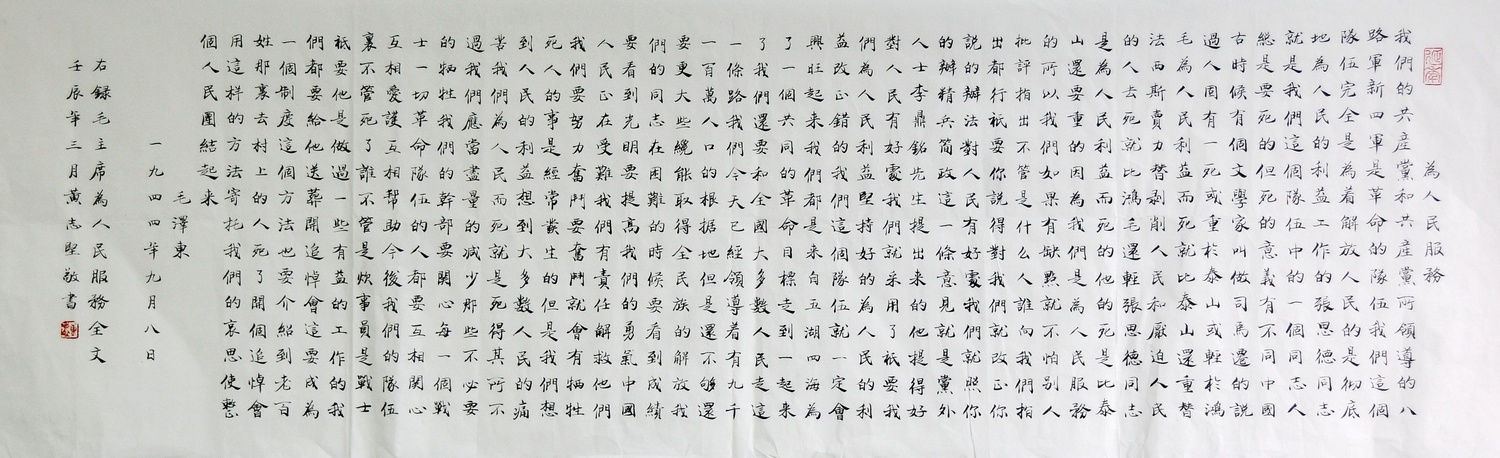 為人民服務
我們的共產黨和共產黨所領導的八
路軍新四軍是革命的隊伍我們這個
隊伍完全是為着解放人民的是彻底
地為人民的利益工作的張思德同志
就是我們這個隊伍中的一個同志人
總是要死的但死的意義有不同中國
古時候有個文學家叫做司馬遷的說
過人固有一死或重於泰山或輕於鴻
毛為人民利益而死就比泰山還重替
法西斯賣力替剥削人民和壓迫人民
的人去死就比鴻毛還輕張思德同志
是為人民利益而死的他的死是比泰
山還要重的因為我們是為人民服務
的所以我們如果有缺點就不怕別人
批評指出不管是什么人誰向我們指
出都行祇要你說得對我們就改正你
說的辦法對人民有好處我們就照你
的辦精兵簡政這一條意見就是黨外
人士李鼎銘先生提出來的他提得好
對人民有好處我們就采用了祇要我
們為人民利益堅持好的為人民的利
益改正錯的我們這個隊伍就一定會
興旺起來我們都是來自五湖四海為
了一個共同的革命目標走到一起來
了我們還要和全國大多數人民走這
一條路我們今天已經領導着有九千
一百萬人口的根據地但是還不够還
要更大些纔能取得全民族的解放我
們的同志在困難的時候要看到成績
要看到光明要提高我們的勇氣中國
人民正在受難我們有責任解救他們
我們要努力奮鬥要奮鬥就會有牺牲
死人的事是經常發生的但是我們想
到人民的利益想到大多數人民的痛
苦我們為人民而死就是死得其所不
過我們應當盡量的減少那些不必要
的牺牲我們的幹部要關心每一個戰
士一切革命隊伍的人都要互相關心
互相愛護互相幫助今後我們的隊伍
裏不管死了誰不管是炊事員是戰士
祇要他是做過一些有益的工作的我
們都要給他送葬開追悼會這要成為
一個制度這個方法也要介紹到老百
姓那裏去村上的人死了開個追悼會
用這样的方法寄托我們的哀思使整
個人民團結起來
毛澤東
一九四四年九月八日
右錄毛主席為人民服務全文
壬辰年三月黄志堅敬書